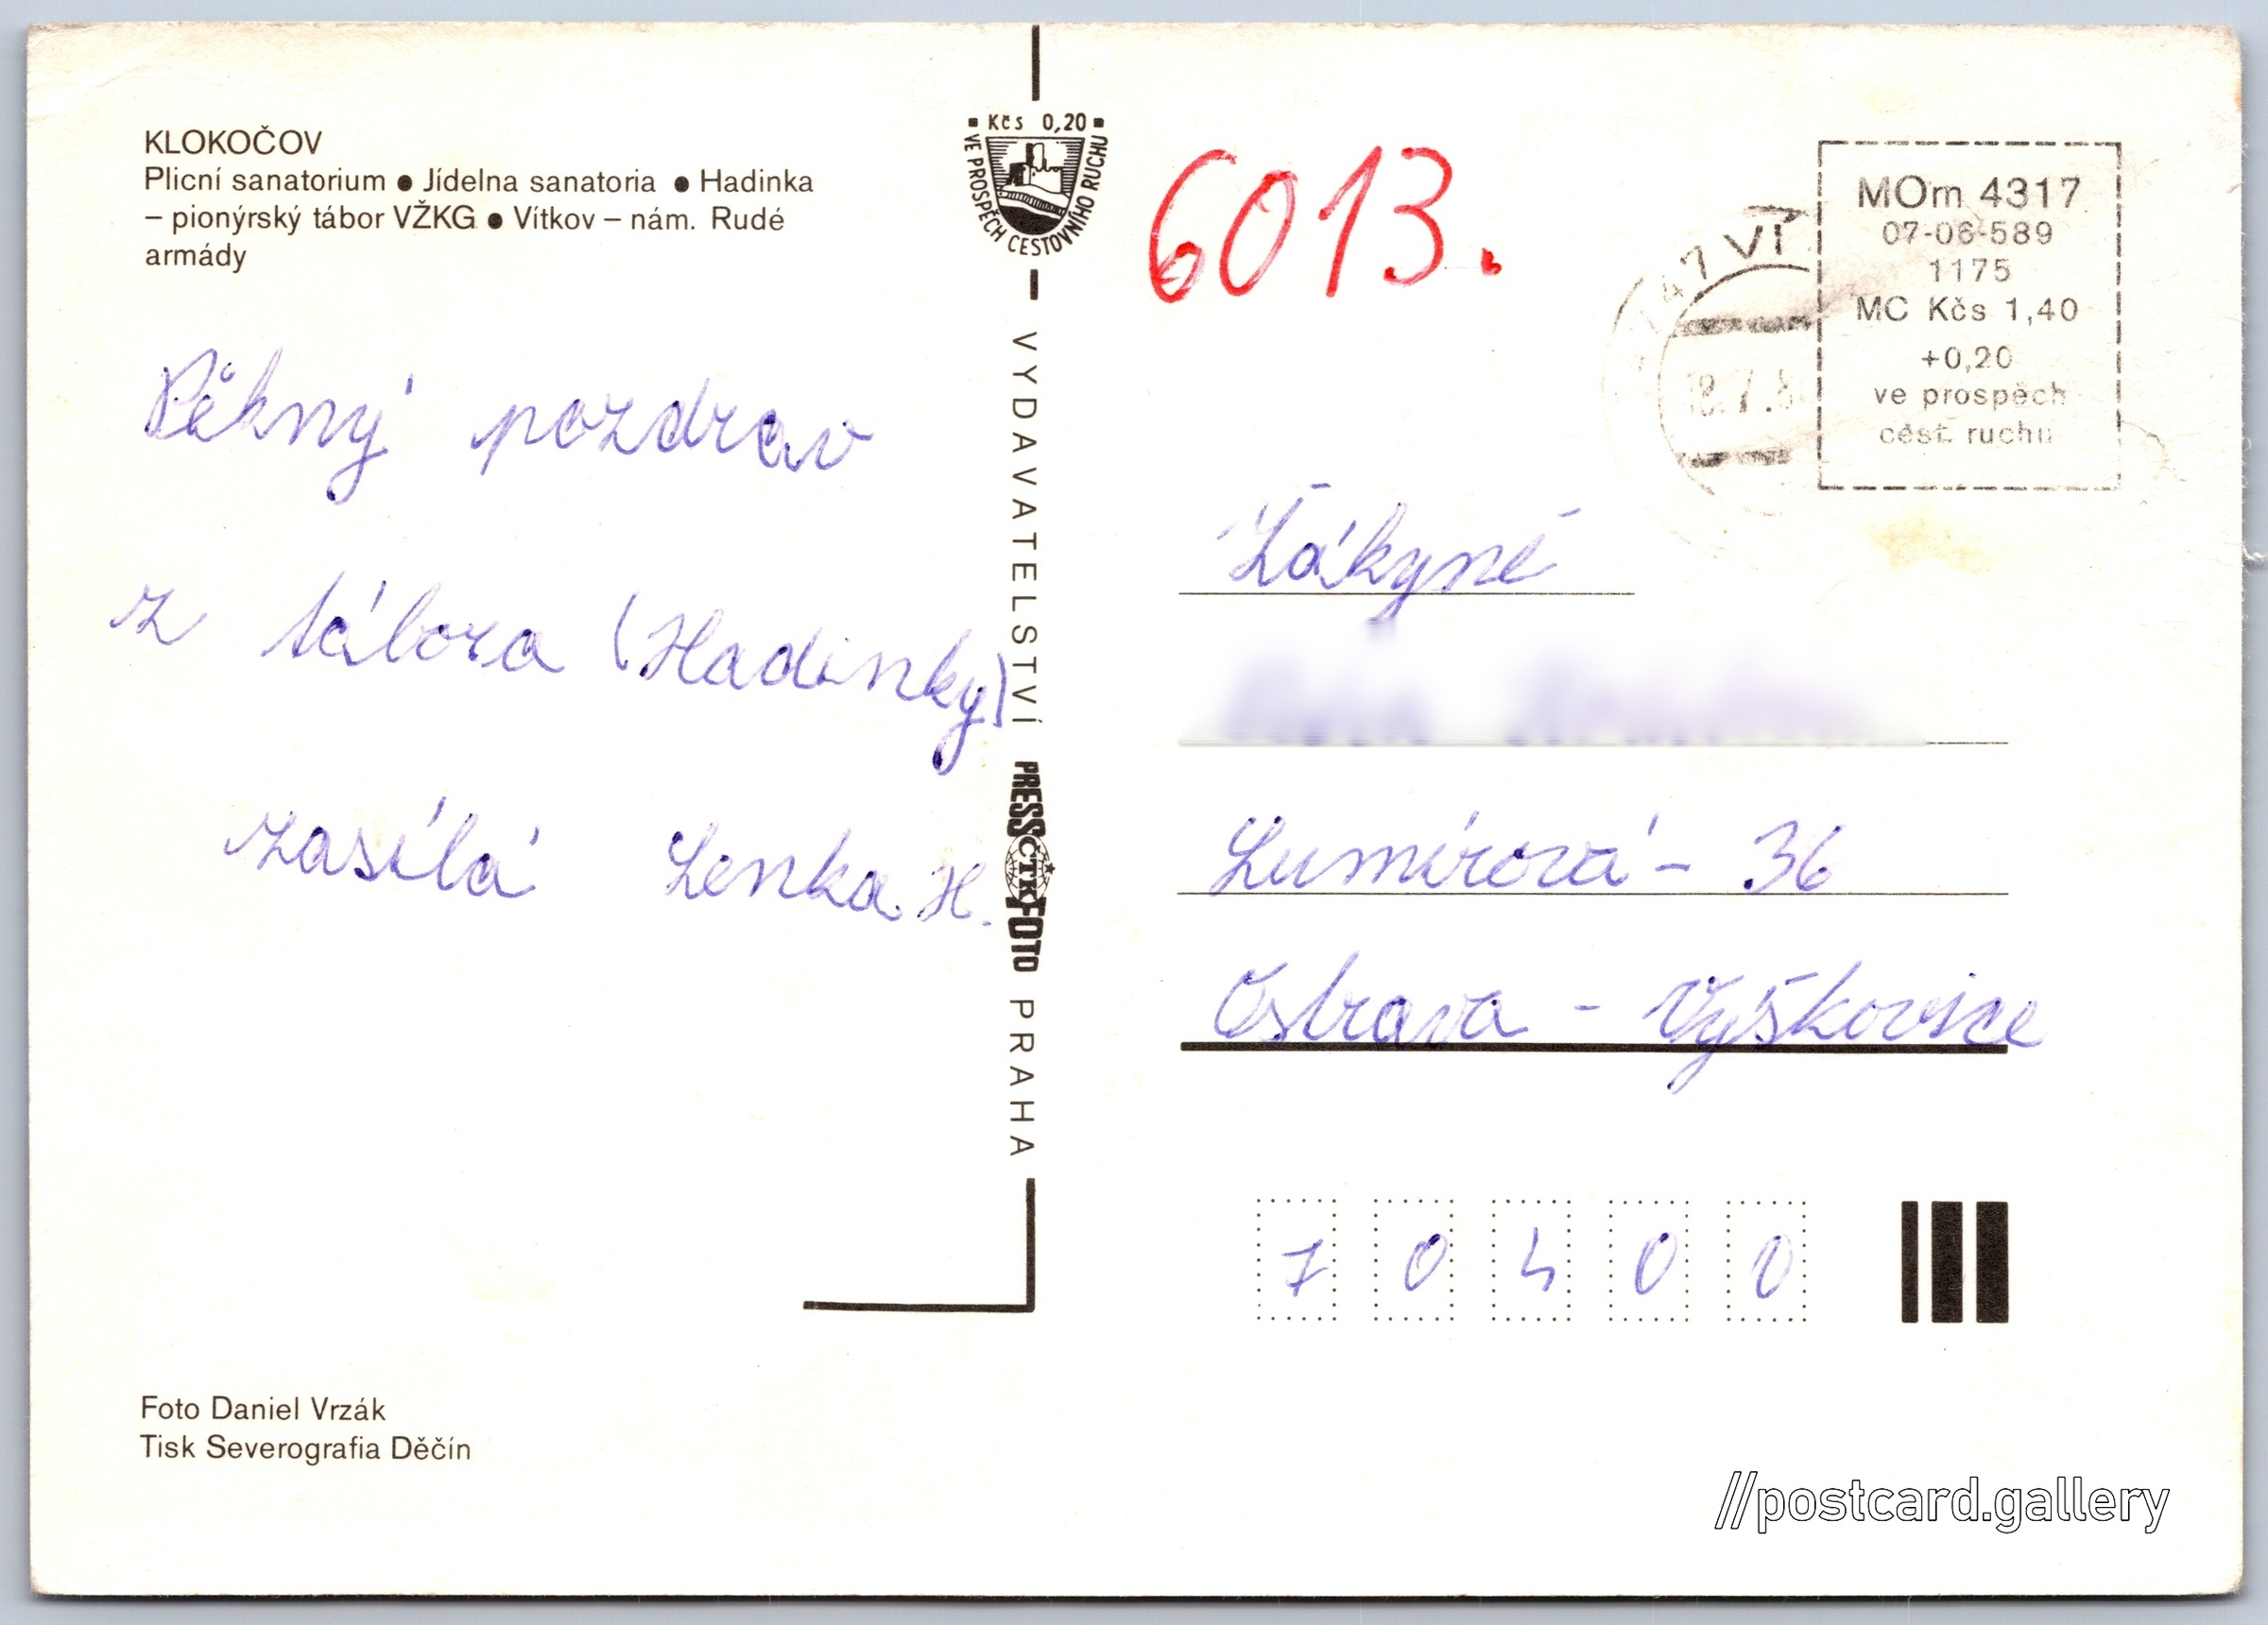 KLOKOČOV
Plicní sanatorium ● Jídelna sanatoria ● Hadinka
– pionýrský tábor VŽKG ● Vítkov – nám. Rudé
armády
Pěkný pozdrav
z tábora (Hadinky)
zasílá Lenka H.
Foto Daniel Vrzák
Tisk Severografia Děčín
Kčs 0,20
VE PROSPĚCH CESTOVNÍHO RUCHU
VYDAVATELSTVÍ PRESSFOTO PRAHA
ČTK
6013.
47 VÍT
18.7.8
MOm 4317
07-06-589
1175
MC Kčs 1,40
+0,20
ve prospěch
cest. ruchu
Žákyně
Lumírová – 36
Ostrava – Výškovice
70400
//postcard.gallery